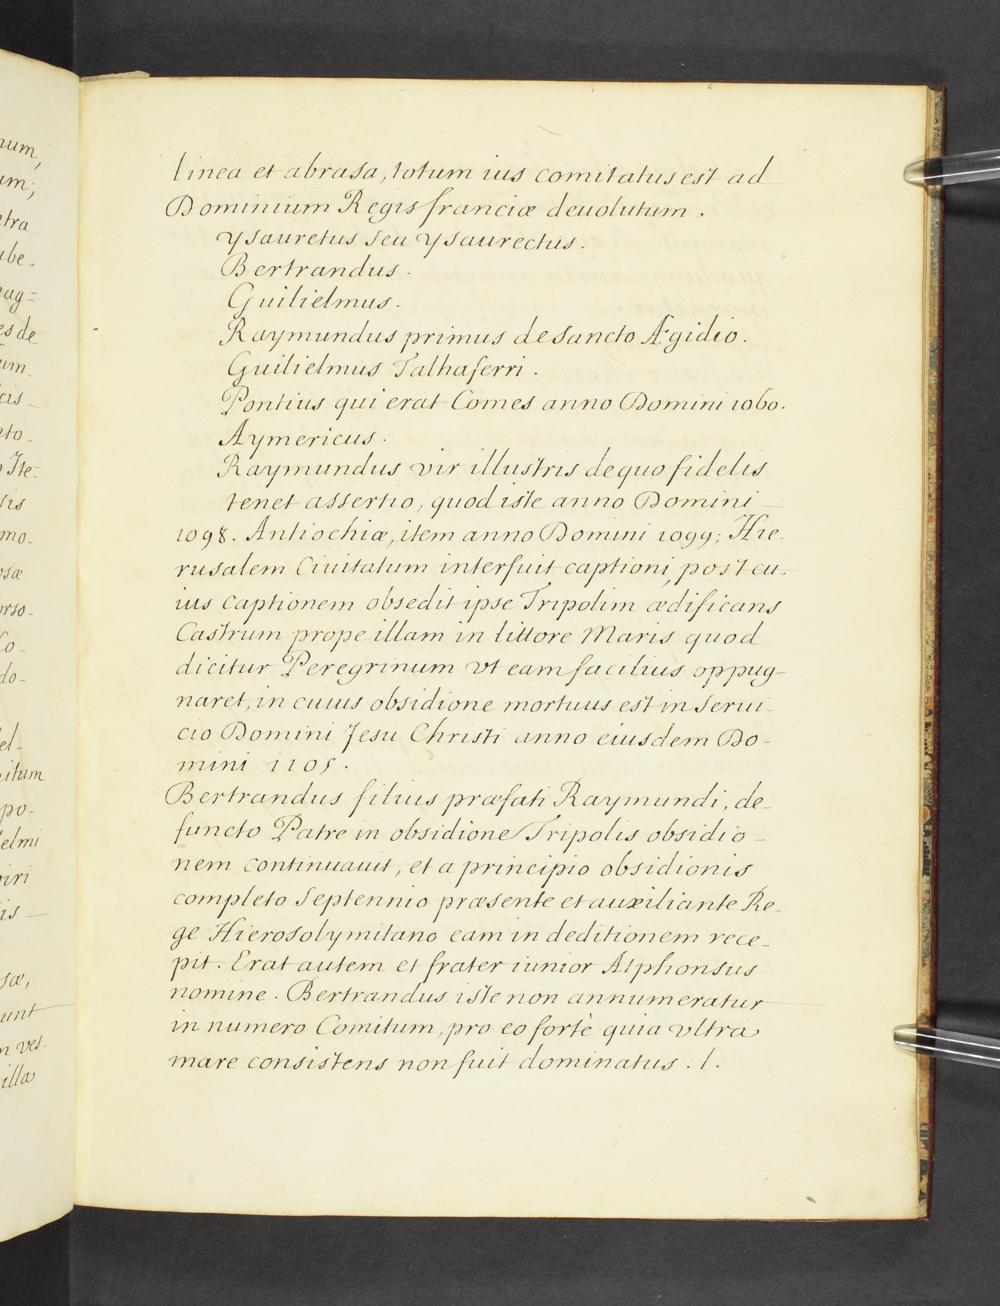 linea et abrasa, totum ius comitatus est ad
Dominium Regis franciæ deuolutum.
ysauretus seu ysaurectus.
Bertrandus.
Guilielmus.
Raymundus primus de Sancto Ægidio.
Guilielmus Talhaferri.
Pontius qui erat Comes anno Domini 1060.
Aymericus.
Raymundus vir illustris de quo fidelis
tenet assertio, quod iste anno Domini
1098. Antiochiæ, item anno Domini 1099; Hie-
rusalem Ciuitatum interfuit captioni, post cu-
ius captionem obsedit ipse Tripolim ædificans
Castrum prope illam in littore Maris quod
dicitur Peregrinum vt eam facilius oppug-
naret, in cuius obsidione mortuus est in Serui-
cio Domini Jesu Christi anno eiusdem Do-
mini 1105.
Bertrandus filius præfati Raymundi, de-
functo Patre in obsidione Tripolis obsidio-
nem continuauit, et a principio obsidionis
completo Septennio præsente et auxiliante Re-
ge Hierosolymitano eam in deditionem rece-
pit. Erat autem et frater iunior Alphonsus
nomine. Bertrandus iste non annumeratur
in numero Comitum, pro eo fortè quia vltra
mare consistens non fuit dominatus. l.